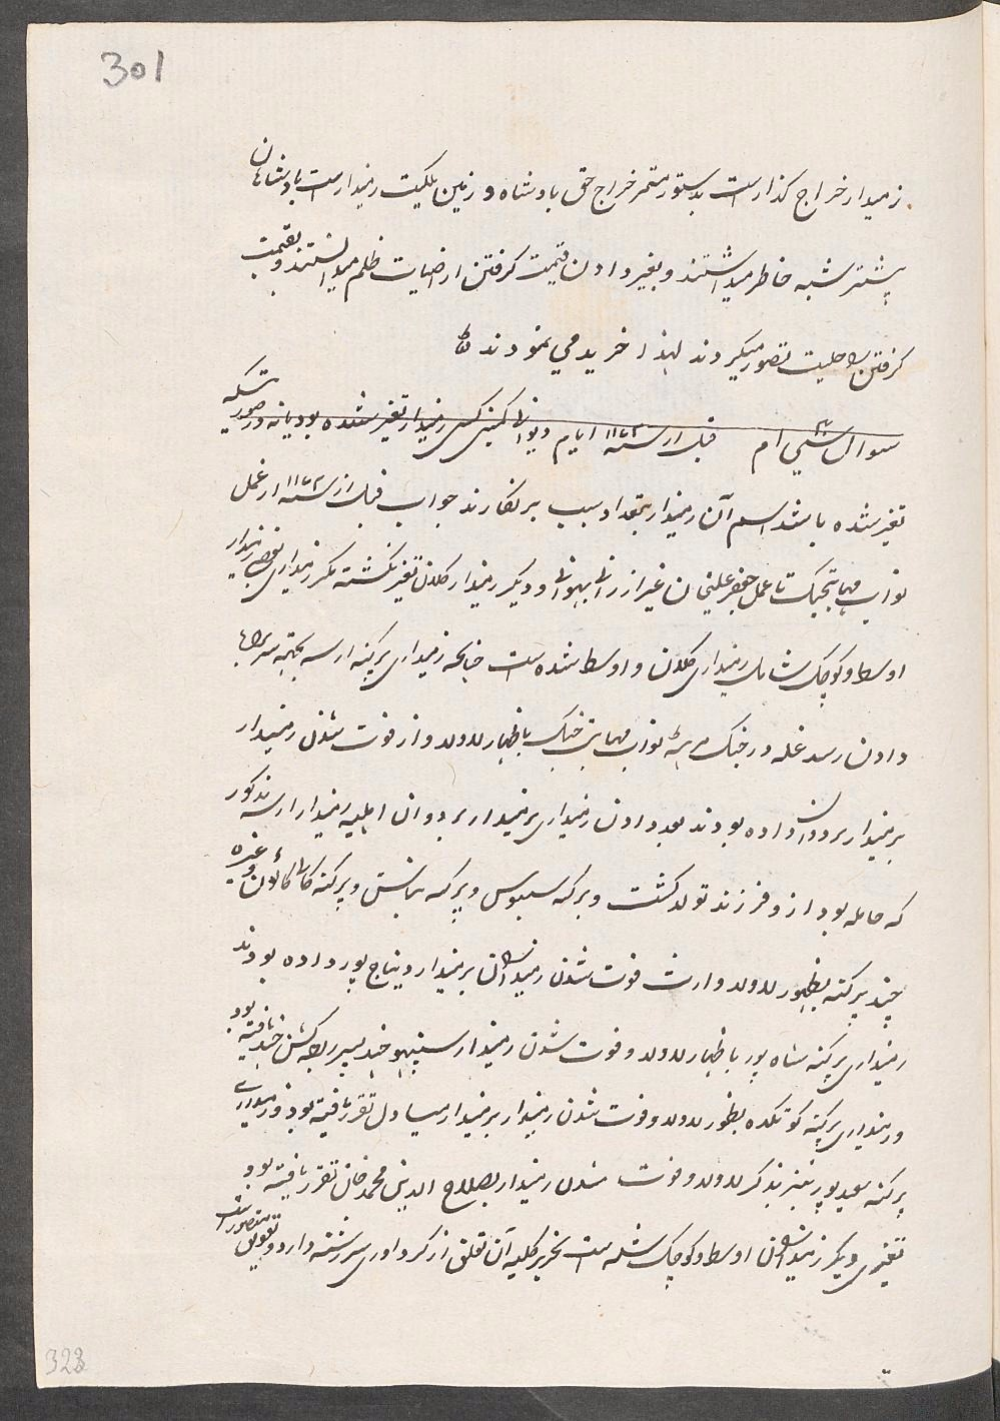 301
زمیندار خراج گذار است بدستور مستمر خراج حق بادشاه و زمین ملکیت زمیندار است بادشاهان
پیشتر شبه خاطر میداشتند و بغیر دادن قیمت گرفتن اراضیات ظلم میدانستند و بقیمت
گرفتن حلیت تصور میکردند لهذا خرید می نمودند
سوال سی ام قبل از سنه ۱۱۷۲ ایام دیوانی کمپنی کسی زمیندار تغیر شده بود یانه در صورتیکه
تغیر شده باشد اسم آن زمیندار بقید سبب بر نگارند جواب قبل از سنه ۱۱۷۲ از عمل
نواب مهابتجنگ تا عمل جعفر علیخان غیر از رانی بهوانی و دیگر زمیندار کلان تغیر نگشته مگر زمینداری بعضی زمیندار
اوسط و کوچک شامل زمینداری کلان و اوسط شده است چنانچه زمینداری پرگنه ارسه بجهته
دادن رسد غله در جنگ مرهٹه نواب مهابت جنگ باظهار لاولد و از فوت شدن زمیندار
بزمیندار بردوان داده بودند بعد دادن زمینداری بزمیندار بردوان اهلیه زمیندار ارسه مذکور
که حامله بود ازو فرزند تولد گشت و پرگنه و پرگنه و پرگنه وغیره
چند پرگنه بظهور لاولد وارث فوت شدن زمینداران بزمیندار دیناج پور داده بودند
زمینداری پرگنه شاه پور باظهار لاولد و فوت شدن زمیندار پسر راجه کشن چند یافته بود
و زمینداری پرگنه بظهور لاولد و فوت شدن زمیندار بزمیندار تقرر یافته بود و زمینداری
پرگنه سعید پور نیز بذکر لاولد و فوت شدن زمیندار بصلاح الدین محمد خان تقرر یافته بود
تغیری دیگر زمینداران اوسط و کوچک شده است تحریر کلیه آن تعلق از گرد آوری سررشته دارد و تعویق متصور است
323